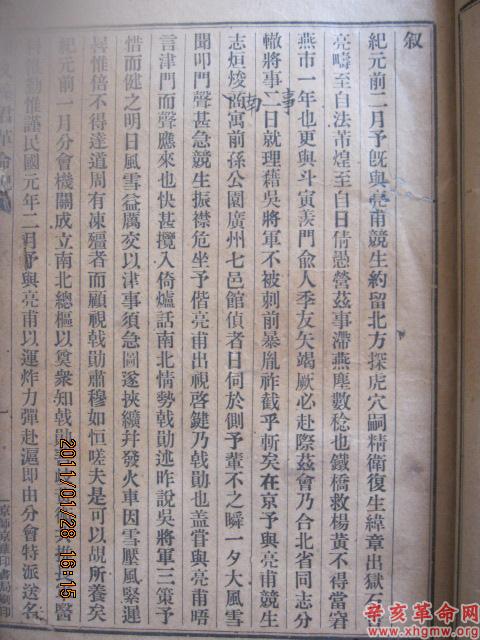 叙
紀元前二月予旣與亮甫競生約留北方探虎穴嗣精衛復生緯章出獄石
亮疇至自法芾煌至自日倩愚營茲事滯燕塵數稔也鐵橋救楊黃不得當窘
燕市一年也更與斗寅羨門僉人季友矢竭厥必赴際茲會乃合北省同志分
轍將事二日就理藉吳將軍不被刺前暴胤祚截乎斬矣在京予與亮甫競生
志烜焌 寓前孫公園廣州七邑館偵者日伺於側予輩不之瞬一夕大風雪
南 事
聞叩門聲甚急競生振襟危坐予偕亮甫出視啓鍵乃戟勛也盖嘗與亮甫晤
言津門而聲應來也快甚攬入倚爐話南北情勢戟勛述昨說吳將軍三策予
惜而健之明日風雪益厲交以津事須急圖遂挾纊幷發火車因雪壓風緊遲
異惟倍不得達道周有凍殭者而顧視戟勛肅穆如恒嗟夫是可以覘所養矣
紀元前一月分會機關成立南北總樞以奠衆知戟勛 醫
動惟謹民國元年二月予與亮甫以運炸力彈赴滬即由分會特派送名
君革命
京師京華印書局 印
2011/01/28 16:15
辛亥革命网
www.xhgmw.com